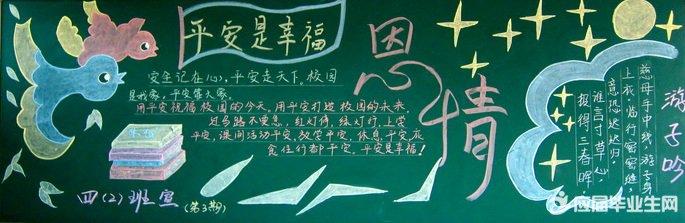 平安是幸福
安全记在心,平安走天下。校园
是我家,平安靠大家。
用平安祝福校园的今天,用平安打造校园的未来,
过马路不要急,红灯停,绿灯行,上学
平安,课间活动平安,放学平安,休息平安,衣
食住行都平安,平安是幸福!
四(2)班宣
(第3期)
恩情
游子吟
慈母手中线,游子身
上衣,临行密密缝,
意恐迟迟归。
谁言寸草心,
报得三春晖。
应届毕业生网